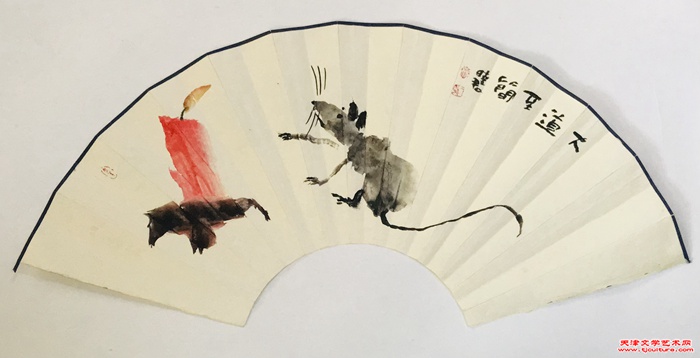 大道至簡
天津文学艺术网
www.tjculture.com